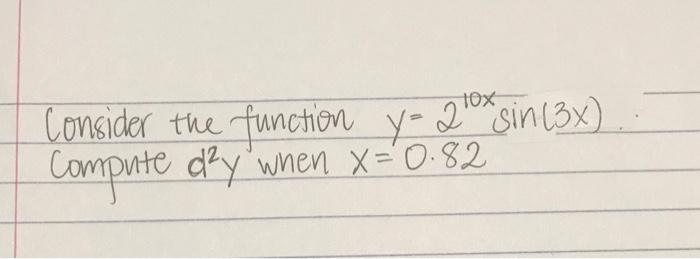 Consider the function y= 2^10x sin(3x).
Compute d²y when x=0.82